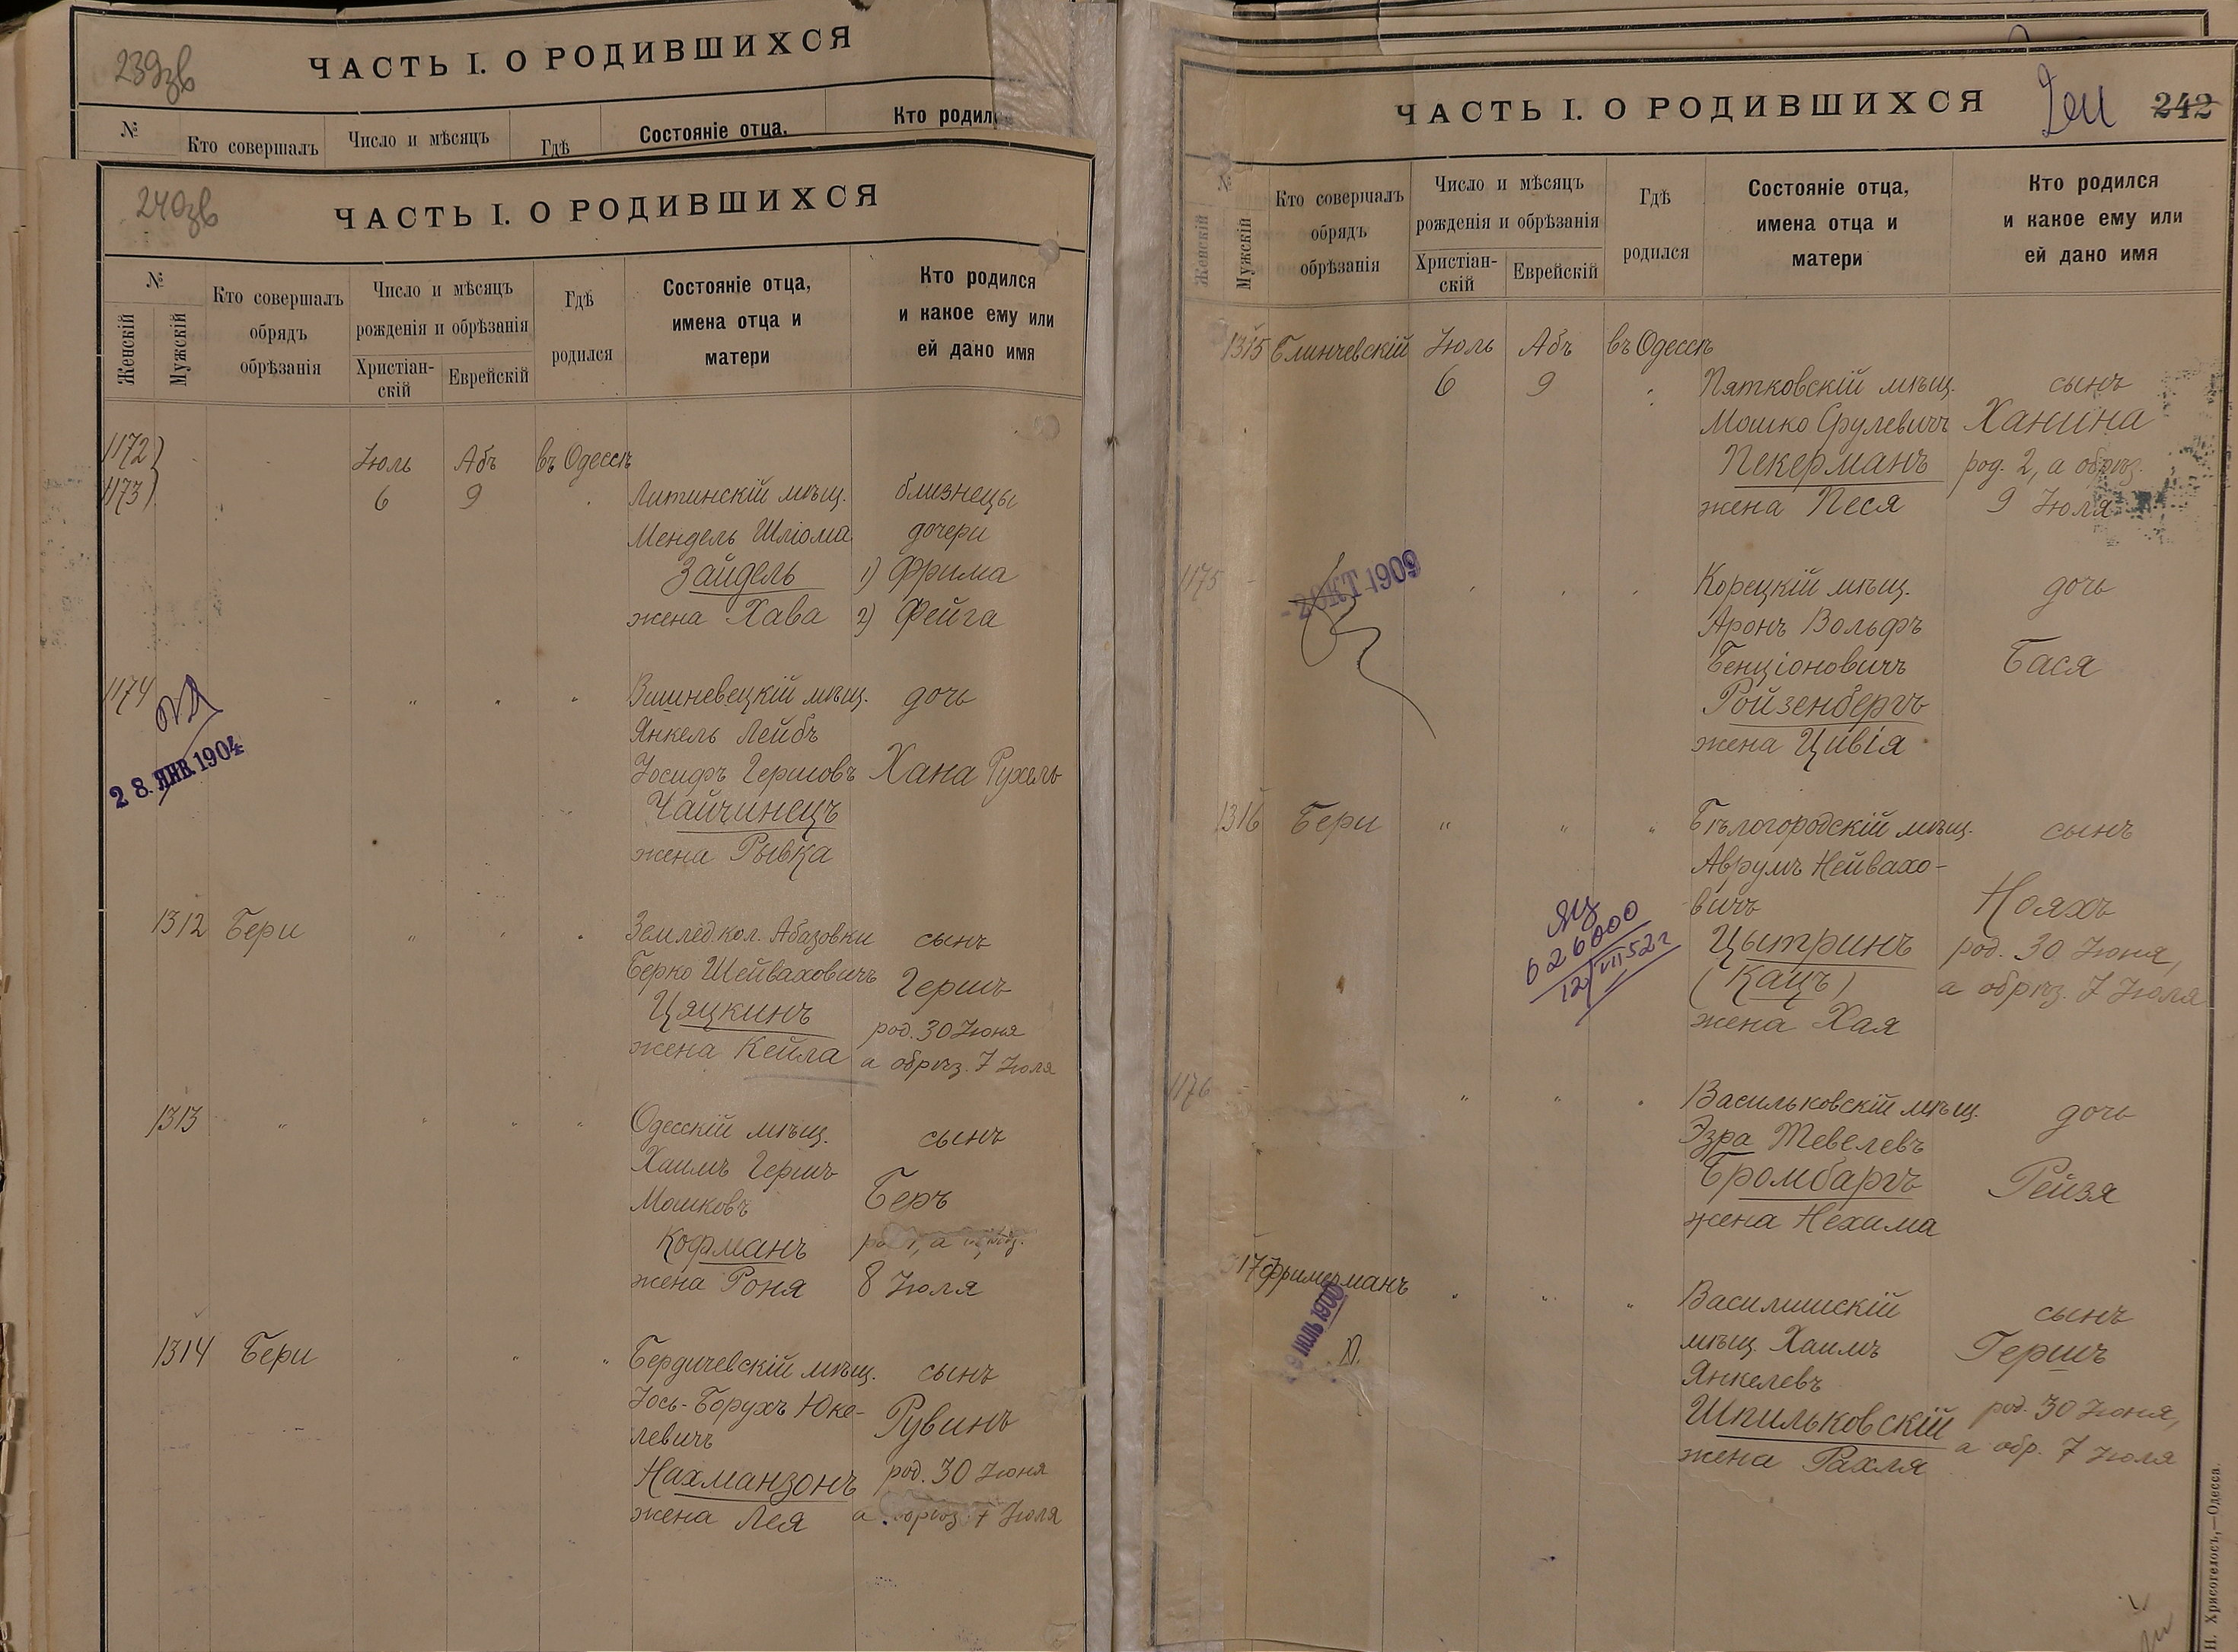 239зв
ЧАСТЬ I. О РОДИВШИХСЯ
№
Кто совершалъ
Число и мѣсяцъ
Гдѣ
Состояніе отца,
Кто родил
240зв
ЧАСТЬ I. О РОДИВШИХСЯ
№
Женскій
Мужскій
Кто совершалъ
обрядъ
обрѣзанія
Число и мѣсяцъ
рожденія и обрѣзанія
Христіан-
скій
Еврейскій
Гдѣ
родился
Состояніе отца,
имена отца и
матери
Кто родился
и какое ему или
ей дано имя
1172)
1173)
Іюль Абъ въ Одессѣ
6 9 Литинскій мѣщ. близнецы
Мендель Шліома дочери
Зайдель 1) Фрима
жена Хава 2) Фейга
1174 " " " Вишневецкій мѣщ. дочь
Янкель Лейбъ
Іосифъ Гершовъ Хана Рухель
Чайчинецъ
жена Рывка
28. ЯНВ. 1904
1312 Бери " " " Землед. кол. Абазовки сынъ
Берко Шейваховичъ Гершъ
Цяцкинъ род. 30 Іюня
жена Кейла а обрѣз. 7 Іюля
1313 " " " " Одесскій мѣщ. сынъ
Хаимъ Гершъ
Мошковъ Беръ
Кофманъ а
жена Роня 8 Іюля
1314 Бери " " " Бердичевскій мѣщ. сынъ
Іось-Борухъ Юке-
левичъ Рувинъ
Нахманзонъ род. 30 Іюня
жена Лея а обрѣз. 7 Іюля
ЧАСТЬ I. О РОДИВШИХСЯ
242
№
Женскій
Мужскій
Кто совершалъ
обрядъ
обрѣзанія
Число и мѣсяцъ
рожденія и обрѣзанія
Христіан-
скій
Еврейскій
Гдѣ
родился
Состояніе отца,
имена отца и
матери
Кто родился
и какое ему или
ей дано имя
1315 Блинчевскій Іюль Абъ въ Одессѣ
6 9 Пятковскій мѣщ. сынъ
Мошко Срулевичъ Ханина
Пекерманъ род. 2, а обрѣз.
жена Песя 9 Іюля
1175 ОКТ 1909 Корецкій мѣщ. дочь
Аронъ Вольфъ
Бенціоновичъ Бася
Ройзенбергъ
жена Цивія
1316 Бери " " " Бѣлогородскій мѣщ. сынъ
Аврумъ Нейвахо-
вичъ Нояхъ
Цытринъ род. 30 Іюня,
(Кацъ) а обрѣз. 7 Іюля
жена Хая
62600
12/VII 52 г
1176 " " " Васильковскій мѣщ. дочь
Эзра Тевелевъ
Бромбаргъ Рейзя
жена Нехама
17 Фримерманъ " " " Василишскій сынъ
мѣщ. Хаимъ Гершъ
Янкелевъ
Шпильковскій род. 30 Іюня,
жена Рахля а обр. 7 Іюля
ІЮЛЬ 1900
Н. Хрисогелосъ,—Одесса.